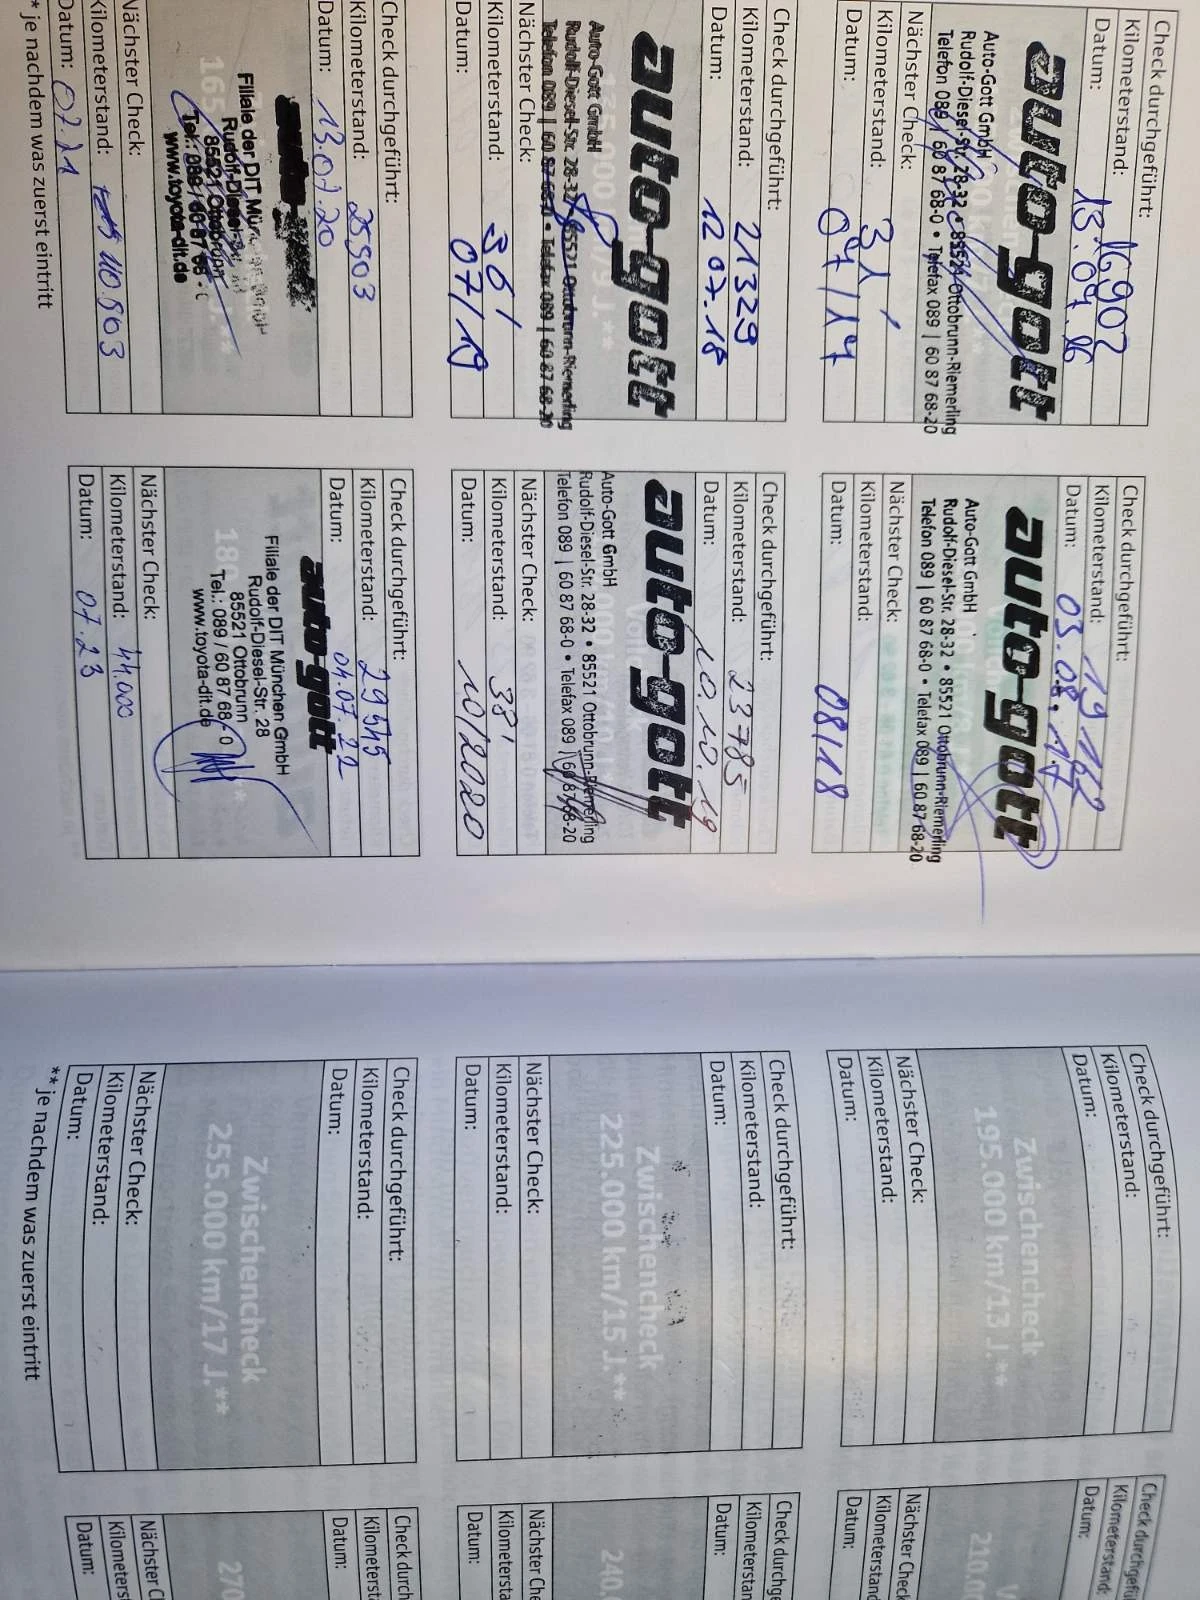 Check durchgeführt:
Kilometerstand: 16902
Datum: 18.07.16
auto-gott
Auto-Gott GmbH
Rudolf-Diesel-Str. 28-32 • 85521 Ottobrunn-Riemerling
Telefon 089 | 60 87 68-0 • Telefax 089 | 60 87 68-20
Nächster Check:
Kilometerstand: 31'
Datum: 07/17
Check durchgeführt:
Kilometerstand: 19162
Datum: 03.08.17
auto-gott
Auto-Gott GmbH
Rudolf-Diesel-Str. 28-32 • 85521 Ottobrunn-Riemerling
Telefon 089 | 60 87 68-0 • Telefax 089 | 60 87 68-20
Nächster Check:
Kilometerstand:
Datum: 08/18
Check durchgeführt:
Kilometerstand: 21329
Datum: 12 07.18
auto-gott
Auto-Gott GmbH
Rudolf-Diesel-Str. 28-32 • 85521 Ottobrunn-Riemerling
Telefon 089 | 60 87 68-0 • Telefax 089 | 60 87 68-20
Nächster Check:
Kilometerstand: 36'
Datum: 07/19
Check durchgeführt:
Kilometerstand: 23785
Datum: 10.10.19
auto-gott
Auto-Gott GmbH
Rudolf-Diesel-Str. 28-32 • 85521 Ottobrunn-Riemerling
Telefon 089 | 60 87 68-0 • Telefax 089 | 60 87 68-20
Nächster Check:
Kilometerstand: 38'
Datum: 10/2020
Check durchgeführt:
Kilometerstand: 25903
Datum: 13.07.20
Filiale der DIT München GmbH
Rudolf-Diesel-Str. 28
85521 Ottobrunn
Tel.: 089 / 60 87 68 - 0
www.toyota-dit.de
Nächster Check:
Kilometerstand: 40.903
Datum: 07.21
* je nachdem was zuerst eintritt
Check durchgeführt:
Kilometerstand: 29545
Datum: 04.07.22
auto-gott
Filiale der DIT München GmbH
Rudolf-Diesel-Str. 28
85521 Ottobrunn
Tel.: 089 / 60 87 68 - 0
www.toyota-dit.de
Nächster Check:
Kilometerstand: 44.000
Datum: 07.23
Check durchgeführt:
Kilometerstand:
Datum:
Zwischencheck
195.000 km/13 J.**
Nächster Check:
Kilometerstand:
Datum:
Check durchgefü
Kilometerstand:
Datum:
210.0
Nächster Check
Kilometerstand
Datum:
Check durchgeführt:
Kilometerstand:
Datum:
Zwischencheck
225.000 km/15 J.**
Nächster Check:
Kilometerstand:
Datum:
Check durchge
Kilometerstan
Datum:
240.
Nächster Che
Kilometerstan
Datum:
Check durchgeführt:
Kilometerstand:
Datum:
Zwischencheck
255.000 km/17 J.**
Nächster Check:
Kilometerstand:
Datum:
** je nachdem was zuerst eintritt
Check durch
Kilometersta
Datum:
270
Nächster C
Kilometerst
Datum: